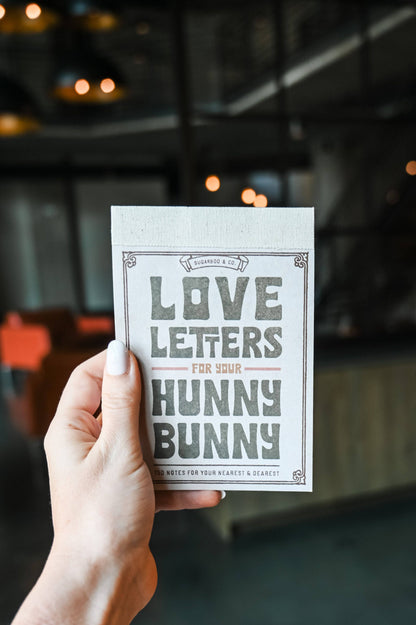 SUGARBOO & CO.
LOVE
LETTERS
FOR YOUR
HUNNY
BUNNY
NOTES FOR YOUR NEAREST & DEAREST